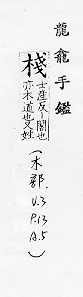 龍龕手鑑
棧
士產反〻閣也
亦木道也又姓
(木部.
V.3
P.13
A.5)